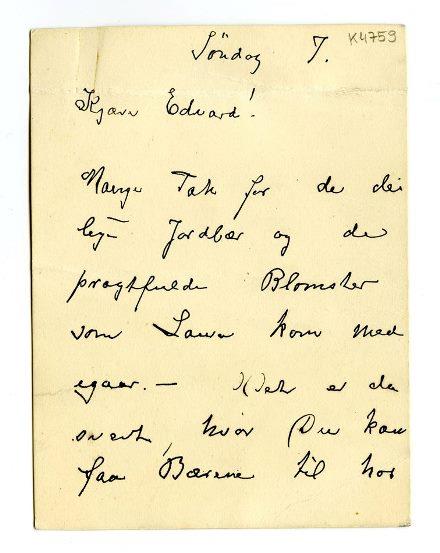 Söndag 7.
K4759
Kjære Edvard!
Mange Tak for de dei
lige Jordbær og de
pragtfulde Blomster
som Laura kom med
igaar. — Det er da
svært, hvor Du kan
faa Bærene til her